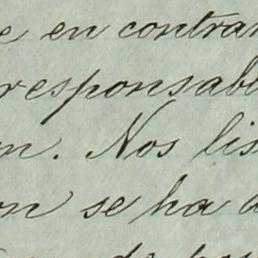 e en contrar
responsabi
n. Nos lis
on se ha d